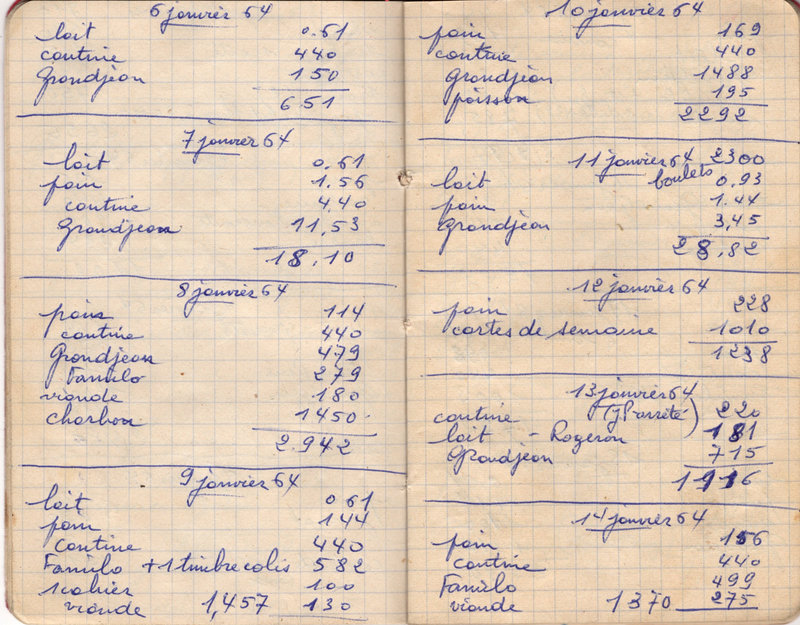 6 janvier 64
lait 0.61
cantine 440
Grandjean 150
651
7 janvier 64
lait 0.61
pain 1.56
cantine 4.40
Grandjean 11,53
18.10
8 janvier 64
pain 114
cantine 440
Grandjean 479
Familo 279
viande 180
charbon 1450
2.942
9 janvier 64
lait 061
pain 144
cantine 440
Familo + 1 timbre colis 582
1 cahier 100
viande 1,457 130
10 janvier 64
pain 169
cantine 440
Grandjean 1488
poisson 195
2292
11 janvier 64 2300
boulets
lait 0.93
pain 1.44
Grandjean 3,45
28,82
12 janvier 64
pain 228
cartes de semaine 1010
1238
13 janvier 64
cantine 220
lait - Rogeron 181
Grandjean 715
1916
14 janvier 64
pain 156
cantine 440
Familo 499
viande 1370 275